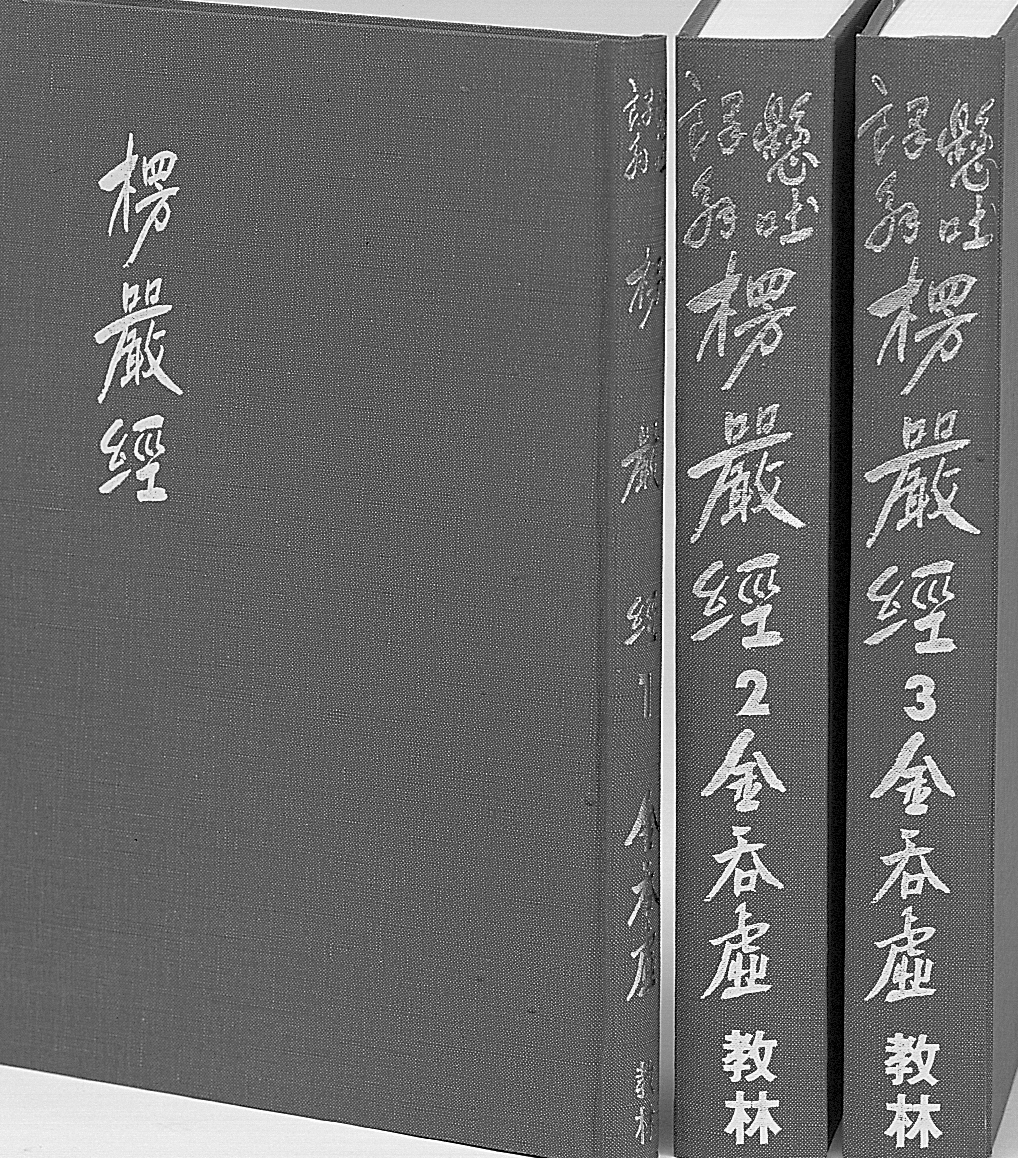 楞嚴經
譯解
楞嚴經
1
金呑虛
教林
懸吐
譯解
楞嚴經
2
金呑虛
教林
懸吐
譯解
楞嚴經
3
金呑虛
教林